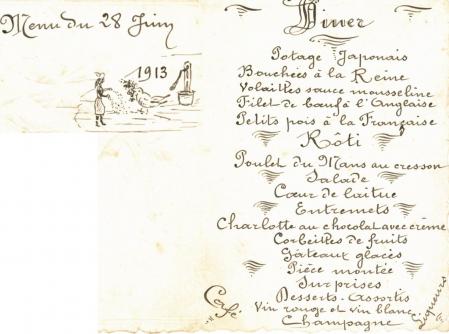 Menu du 28 Juin
1913
Diner
Potage Japonais
Bouchées à la Reine
Volailles sauce mousseline
Filet de bœuf à l'Anglaise
Petits pois à la Française
Rôti
Poulet du Mans au cresson
Salade
Cœur de laitue
Entremets
Charlotte au chocolat avec crème
Corbeilles de fruits
Gâteaux glacés
Pièce montée
Surprises
Desserts-Assortis
Vin rouge et vin blanc
Champagne
Café
Liqueurs